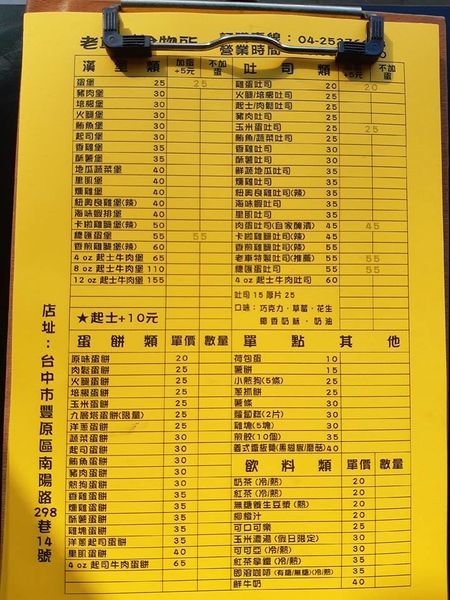 營業時間 04-253
漢堡類 加蛋+5元 不加蛋
蛋堡 25 25
豬肉堡 30
培根堡 30
火腿堡 30
鮪魚堡 30
起司堡 30
香雞堡 35
酥薯堡 35
地瓜蔬菜堡 40
里肌堡 40
燻雞堡 40
紐奧良雞堡(辣) 40
海味蝦排堡 40
卡啦雞腿堡(辣) 50
總匯蛋堡 55 55
香煎雞腿堡(辣) 60
4 oz 起士牛肉堡 65
8 oz 起士牛肉堡 110
12 oz 起士牛肉堡 155
★起士+10元
吐司類 +5元 不加蛋
雞蛋吐司 20 20
火腿/培根吐司 25
起士/肉鬆吐司 25
豬肉吐司 25
玉米蛋吐司 25 25
鮪魚/蔬菜吐司 25
香雞吐司 35
酥薯吐司 35
鮮蔬地瓜吐司 35
燻雞吐司 35
紐奧良雞吐司(辣) 35
海味吐司 35
里肌吐司 35
肉蛋吐司(自家醃漬) 45 45
卡啦雞腿吐司(辣) 45
香煎雞腿吐司(辣) 55
老車特製吐司(推薦) 55 55
總匯蛋吐司 55 55
4 oz 起士牛肉吐司 60
吐司15 厚片25
口味：巧克力‧草莓‧花生
椰香奶酥‧奶油
蛋餅類 單價 數量
原味蛋餅 20
肉鬆蛋餅 25
火腿蛋餅 25
培根蛋餅 25
玉米蛋餅 25
九層塔蛋餅(限量) 25
洋蔥蛋餅 25
蔬菜蛋餅 30
起司蛋餅 30
鮪魚蛋餅 30
豬肉蛋餅 30
熱狗蛋餅 30
香雞蛋餅 35
燻雞蛋餅 35
酥薯蛋餅 35
雞塊蛋餅 35
洋蔥起司蛋餅 35
里肌蛋餅 40
4 oz 起司牛肉蛋餅 65
單點其他
荷包蛋 10
薯餅 15
小熱狗(5條) 25
蔥抓餅 25
薯條 30
蘿蔔糕(2片) 30
雞塊(5塊) 30
煎餃(10個) 35
義式鐵板麵(黑胡椒/蘑菇) 40
飲料類 單價 數量
奶茶(冷/熱) 20
紅茶(冷/熱) 20
無糖養生豆漿(熱) 20
柳橙汁 20
可口可樂 25
玉米濃湯(假日限定) 30
可可亞(冷/熱) 30
紅茶拿鐵(冷/熱) 35
即溶咖啡(有糖/無糖)(冷/熱) 35
鮮牛奶 40
店址：台中市豐原區南陽路298巷14號